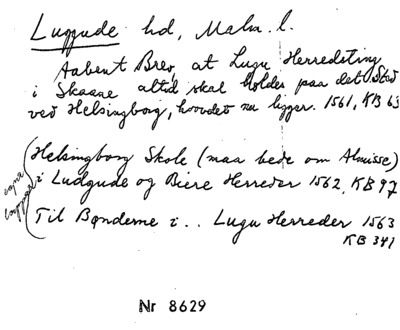 Luggude hd, Malm. l.
Aabent Brev, at Lugu Herredsting
i Skaane altid skal holdes paa det Sted
ved Helsingborg, hvordet nu ligger. 1561, KB 63
(Helsingborg Skole (maa bede om Almisse)
i Ludgude og Biere Herreder 1562, KB 97
Til Bønderne i .. Lugu Herreder 1563
KB 341
Nr 8629